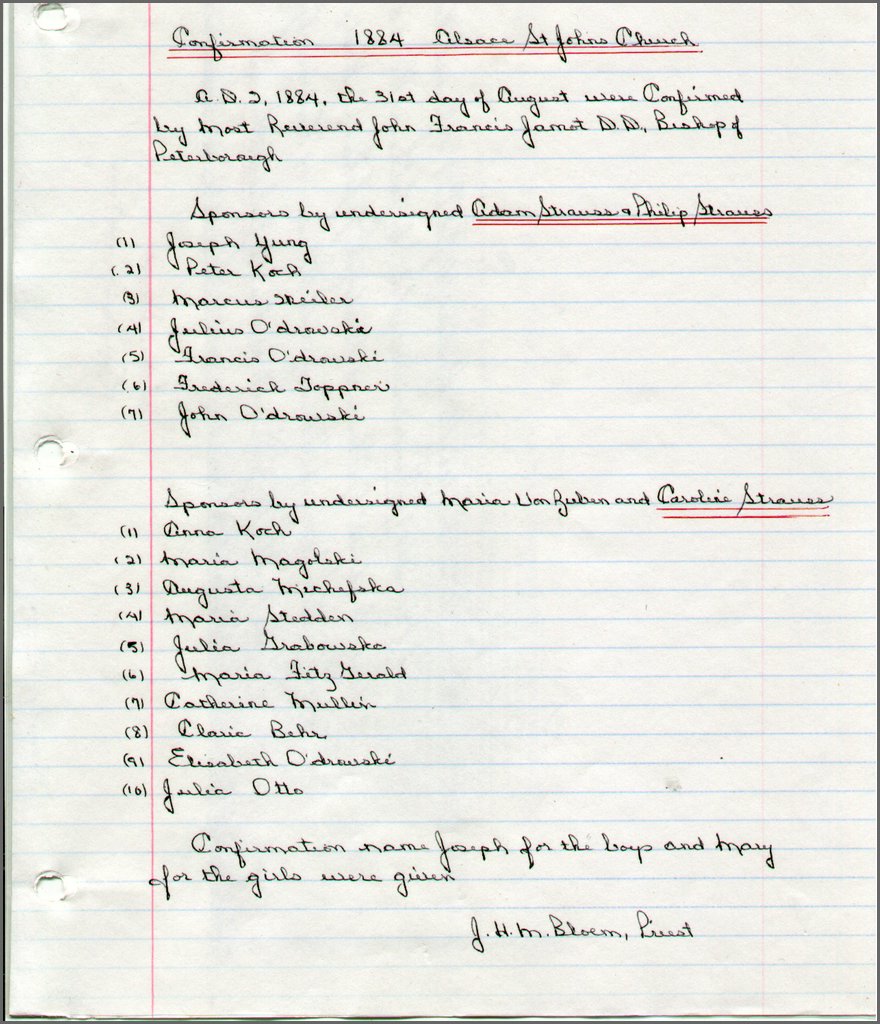 Confirmation 1884 Alsace St Johns Church
A.D. 2, 1884, the 31st day of August were Confirmed
by Most Reverend John Francis Jamot D.D., Bishop of
Peterborough
Sponsors by undersigned Adam Strauss & Philip Strauss
(1) Joseph Yung
(2) Peter Koch
(3) Marcus
(4) Julius O'drowski
(5) Francis O'drowski
(6) Frederich Toppner
(7) John O'drowski
Sponsors by undersigned Maria VonZuben and Caroline Strauss
(1) Anna Koch
(2) Maria Magolski
(3) Augusta Michefska
(4) Maria Stedden
(5) Julia Grabowska
(6) Maria FitzGerald
(7) Catherine Mullin
(8) Clarie Behr
(9) Elisabeth O'drowski
(10) Julia Otto
Confirmation name Joseph for the boys and Mary
for the girls were given
J.H.M. Bloem, Priest